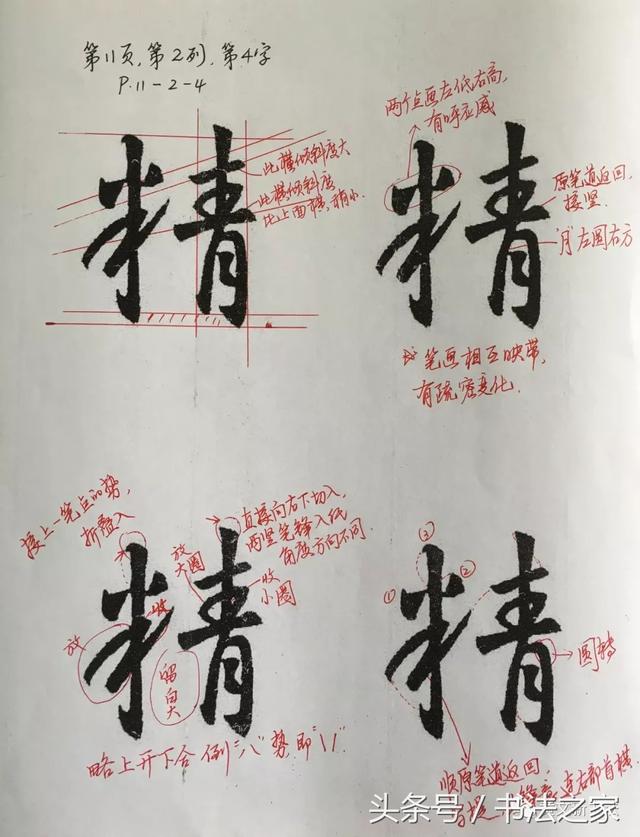 第11页,第2列,第4字
P.11-2-4
精
此横倾斜度大
此横倾斜度
比上面横,稍小
两个点画左低右高,
有呼应感
精
原笔道返回,
接竖.
"月"左圆右方
笔画相互映带,
有疏密变化.
接上一笔点的势,
折叠入
直接向右下切入,
两竖笔锋入纸
角度方向不同.
放
大圈
收
小圈
精
放
收
留白大
略上开下合 倒"八"势,即"\/"
精
①
②
③
圆转
顺原笔道返回,
连右部首横.
头条号/书法之家